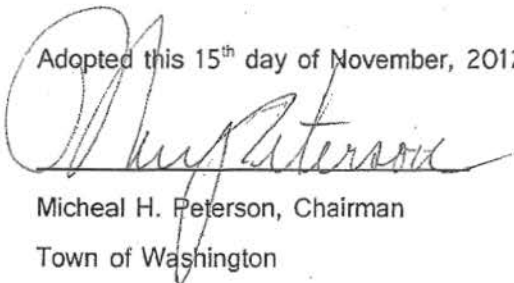 Adopted this 15th day of November, 2012
Peterson
Micheal H. Peterson, Chairman
Town of Washington